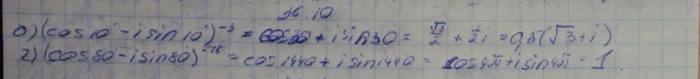 36.10
а) (cos10° - i sin10°)⁻³ = cos30 + i sin30 = √3/2 + 1/2 i = 0,5(√3+i)
г) (cos80 - i sin80)⁻¹⁸ = cos1440 + i sin1440 = cos4π + i sin4π = 1